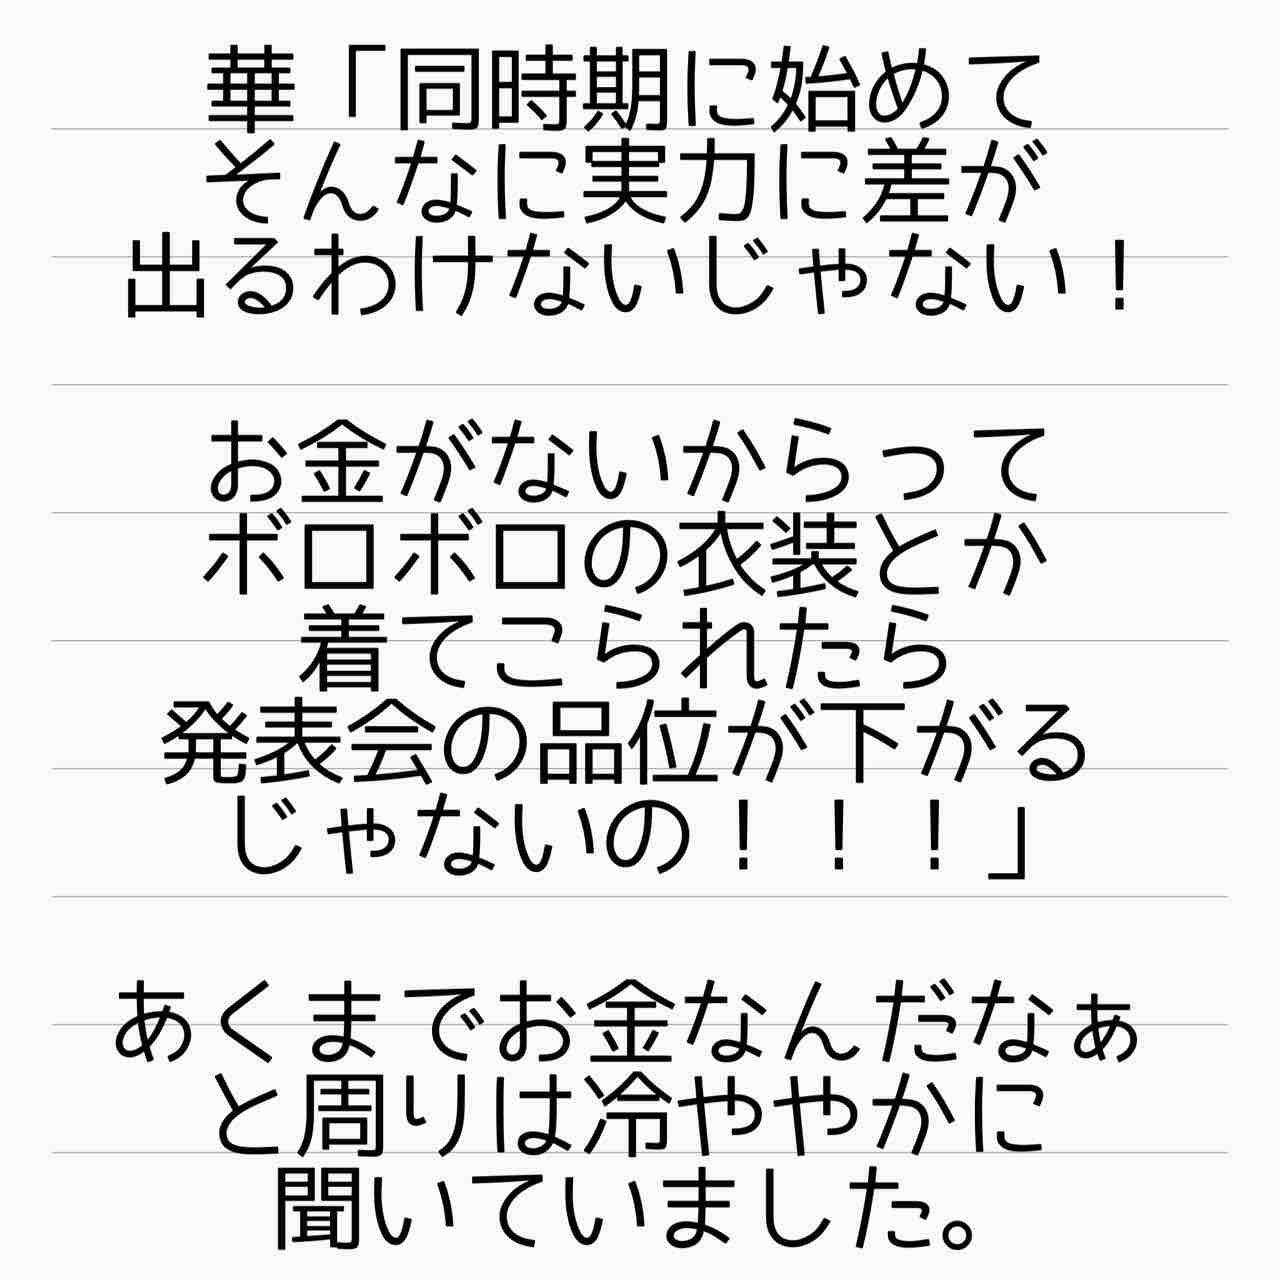 華「同時期に始めて
そんなに実力に差が
出るわけないじゃない！
お金がないからって
ボロボロの衣装とか
着てこられたら
発表会の品位が下がる
じゃないの！！！」
あくまでお金なんだなぁ
と周りは冷ややかに
聞いていました。